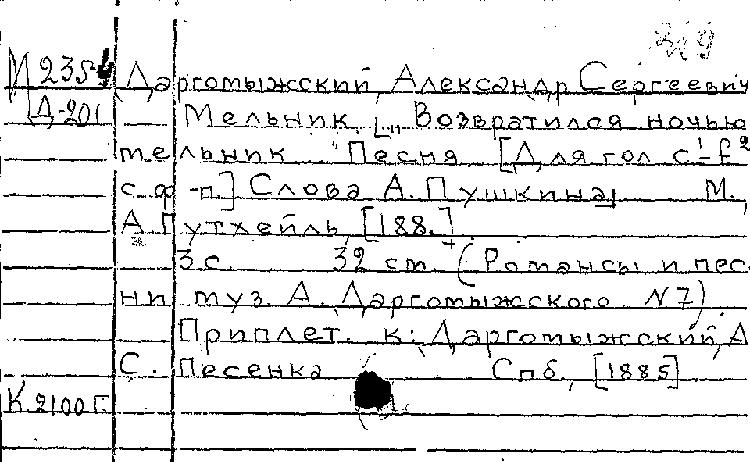 М 2354 Даргомыжский, Александр Сергеевич
Д-201 Мельник. [... Возвратился ночью
мельник..." Песня [Для гол. с¹-f²
с ф-п.] Слова А. Пушкина. М.,
А. Гутхейль, [188.]
3 с. 32 см. (Романсы и пес-
ни муз. А. Даргомыжского N 7)
Приплет. к: Даргомыжский, А.
С. Песенка Спб., [1885]
К 2100 г.